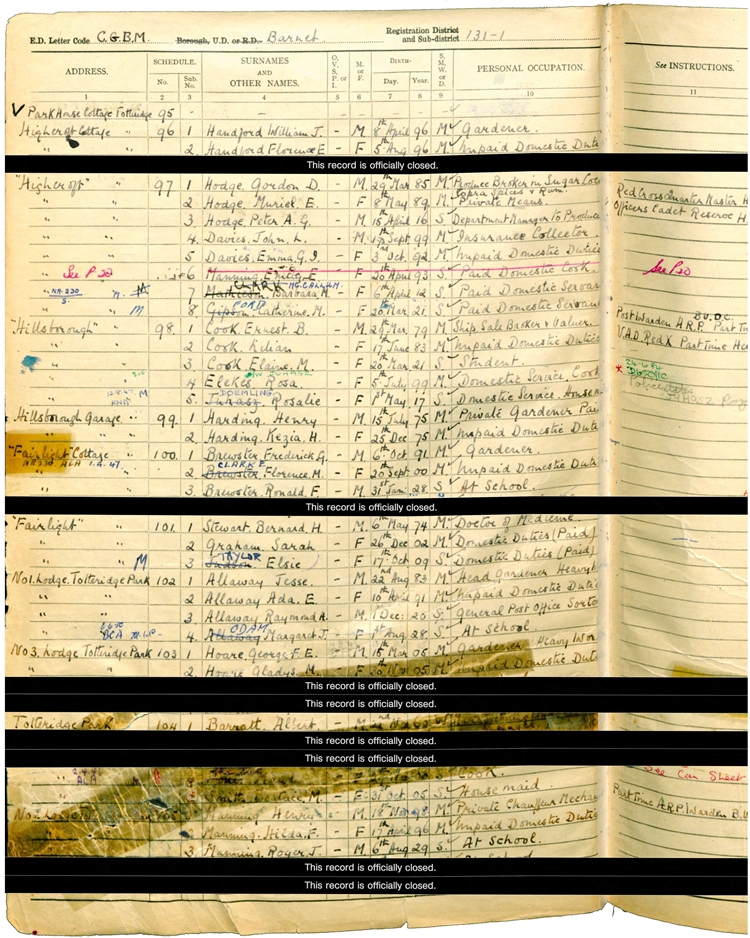 E.D. Letter Code C.G.B.M. Borough, U.D. or R.D. Barnet. Registration District and Sub-district 131-1
ADDRESS. SCHEDULE. No. Sub. No. SURNAMES AND OTHER NAMES. O, V, S, P, or I. M. or F. BIRTH— Day. Year. S, M, W, or D. PERSONAL OCCUPATION. See INSTRUCTIONS.
1 2 3 4 5 6 7 8 9 10 11
Park House Cottage Totteridge 95 - - - - - - -
Highcroft Cottage " 96 1 Handford William J. - M 8th April 96 M Gardener.
" " 2 Handford Florence E - F 5th Aug 96 M Unpaid Domestic Duti
This record is officially closed.
"Highcroft" " 97 1 Hodge Gordon D. - M 29th Mar 85 M Produce Broker in Sugar Coc
Copra Spices & Rum. Red Cross Quarter Master H
" " 2 Hodge Muriel E. - F 8th May 89 M Private Means. Officers Cadet Reserve H
" " 3 Hodge Peter A. G. - M 15th April 16 S Department Manager To Produce
" " 4 Davies, John. L. - M 19th Sept 99 M Insurance Collector.
" " 5 Davies, Emma. G. I. - F 3rd Oct. 92 M Unpaid Domestic Duties
See P 20 6 Manning E - F 20th April 93 S Paid Domestic Cook. See P20
CLARK McCALLUM.
NR-230 M 7 Mathieson Barbara. M. - F 6th April 12 S Paid Domestic Servan
FORD
" M 8 Gipson, Catherine. M. - F 20th Mar 21 S Paid Domestic Servan
"Hillsborough" " 98 1 Cook Ernest B. - M 29th Mar 79 M Ship Sale Broker & Valuer. Post Warden A.R.P. Part Tim
B.U.D.C.
" 2 Cook Lilian - F 17th June 83 M Unpaid Domestic Duties V.A.D. Red X Part Time Her
" 3 Cook Elaine. M. - F 20th Mar 21 S Student.
" 4 Elekes, Rosa. - F 5th July 99 M Domestic Service Cook
DOEMLING
M 5 Juhasz Rosalie - F 1st May. 17 S Domestic Service. Housem
Hillsborough Garage " 99 1 Harding. Henry - M 15th July 75 M Private Gardener Pai
" " 2 Harding. Kezia. H. - F 25th Dec 75 M Unpaid Domestic Dut
"Fairlight Cottage 100 1 Brewster Frederick G. - M 6th Oct. 91 M Gardener.
NR230 ALA 1.4.47. CLARKE
2 Brewster, Florence. M. - F 20th Sept 00 M Unpaid Domestic Dut
" " 3 Brewster. Ronald. F. - M 31st Jan. 28 S At School.
This record is officially closed.
"Fairlight" " 101 1 Stewart. Bernard. H. - M 6th May 74 M Doctor of Medicine.
" " 2 Graham. Sarah - F 26th Dec 02 M Domestic Duties (Paid)
TAYLOR
" " M 3 Judson. Elsie - F 17th Oct 09 S Domestic Duties (Paid)
No 1. Lodge. Totteridge Park 102 1 Allaway Jesse. - M 22nd Aug 83 M Head Gardener Heavy
" 2 Allaway Ada. E. - F 10th April 91 M Unpaid Domestic Duti
" 3 Allaway Raymond A. - M 1st Dec: 20 S General Post Office Sorte
ODAM
" 4 Allaway Margaret J. - F 1st Aug 28 S At School.
No 3. Lodge Totteridge Park 103 1 Hoare, George F. E. - M 15th Mar 05 M Gardener Heavy Wor
" 2 Hoare Gladys. M. - F 20th Nov 05 M Unpaid Domestic Dut
This record is officially closed.
This record is officially closed.
Totteridge Park 104 1 Barratt. Albert.
This record is officially closed.
This record is officially closed.
ALA Cook. See Con Sheet
Smith M. - F 31st Oct 05 S House maid
No Lodge Manning Henry M 18th Nov 98 M Private Chauffeur Mechan Part Time A.R.P. Warden B.U
2 Manning. Hilda. F. - F 17th April 96 M Unpaid Domestic Dutie
3 Manning. Roger. J. - M 6th Aug 29 S At School.
This record is officially closed.
This record is officially closed.